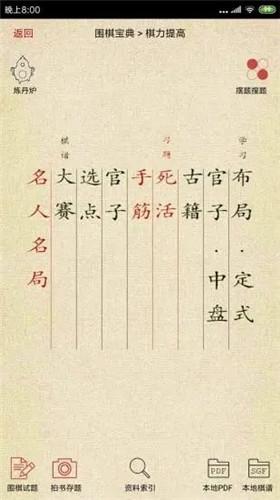 晚上8:00
返回
围棋宝典 > 棋力提高
炼丹炉
摆题搜题
学习
布局·定式
官子·中盘
古籍
习题
死活
手筋
官子
选点
棋谱
大赛
名人名局
围棋试题
拍书存题
资料索引
PDF
本地PDF
SGF
本地棋谱